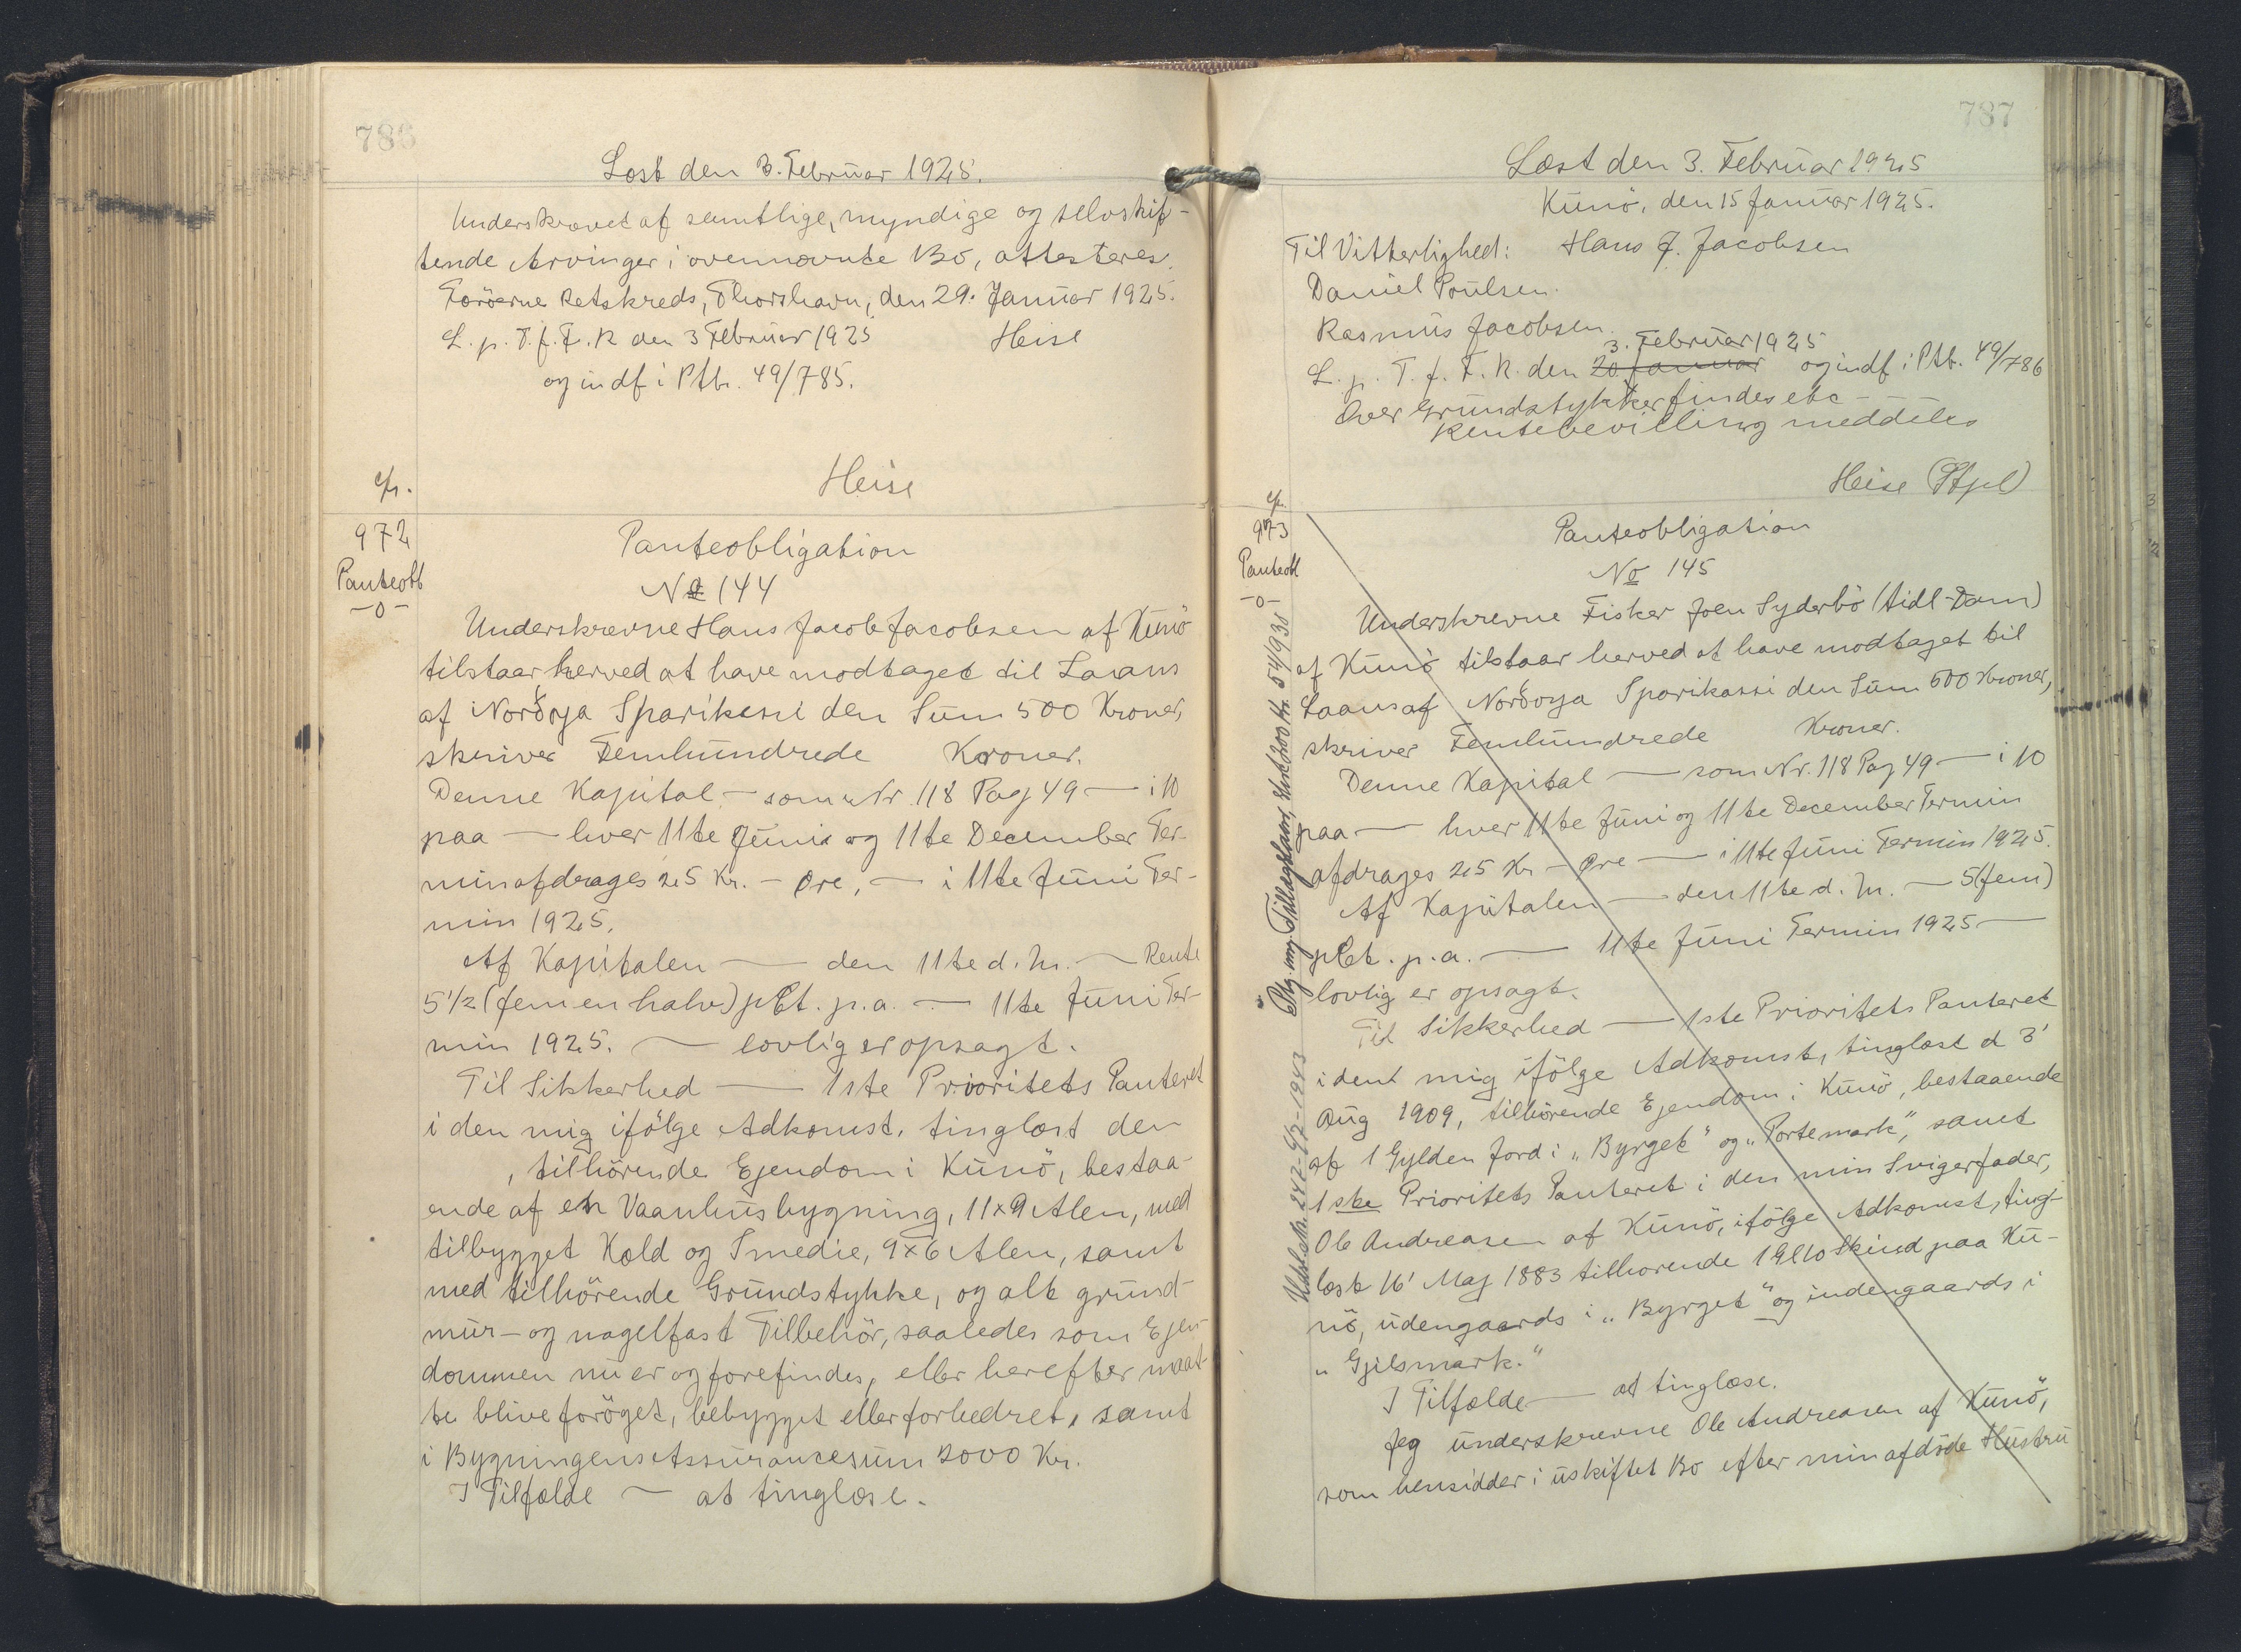 786
Læst den 3. Februar 1925.
Underskrevet af samtlige, myndige og selvskif-
tende Arvinger i ovennævnte Bo, attesteres.
Færöerne Retskreds, Thorshavn, den 29. Januar 1925.
L. p. T. f. F. R den 3 Februar 1925 Heise
og indf i Ptb. 49/785.
Heise
cfr.
972
Panteobl
-0-
Panteobligation
No 144
Underskrevne Hans Jacob Jacobsen af Kunö
tilstaar herved at have modtaget til Laans
af Norðoya Sparikassi den Sum 500 Kroner,
skriver Femhundrede Kroner.
Denne Kapital — som Nr. 118 Pag 49 — i 10
paa — hver 11te Juni og 11te December Ter-
min afdrages 25 Kr. - Øre, — i 11te Juni Ter-
min 1925.
Af Kapitalen — den 11te d. M. — Rente
5 1/2 (fem en halv) pCt. p.a. — 11te Juni Ter-
min 1925. — lovlig er opsagt.
Til Sikkerhed — 1ste Prioritets Panteret
i den mig ifölge Adkomst, tinglæst den
, tilhörende Ejendom i Kunö, bestaa-
ende af en Vaanhusbygning, 11x9 Alen, med
tilbygget Kæld og Smedie, 9x6 Alen, samt
med tilhörende Grundstykke, og alt grund-
mur- og nagelfast Tilbehör, saaledes som Ejen-
dommen nu er og forefindes, eller herefter maat-
te blive foröget, bebygget eller forbedret, samt
i Bygningens Assurancesum 2000 Kr.
I Tilfælde — at tinglæse.
787
Læst den 3. Februar 1925
Kunö, den 15 Januar 1925.
Til Vitterlighed: Hans J. Jacobsen
Daniel Poulsen.
Rasmus Jacobsen.
3. Februar 1925
L. p. T. f. F. R. den 20 Januar og indf i Ptb. 49/786
Over Grundstykker findes etc
Rentebevilling meddeles
Heise (Stpl)
cfr.
973
Panteobl
-0-
Panteobligation
No 145
Underskrevne Fisker Joen Syderbö (tidl. Dam)
af Kunö tilstaar herved at have modtaget til
Laans af Norðoya Sparikassi den Sum 500 Kroner,
skriver Femhundrede Kroner.
Denne Kapital — som Nr. 118 Pag 49 — i 10
paa — hver 11te Juni og 11te December Termin
afdrages 25 Kr — Øre — i 11te Juni Termin 1925.
Af Kapitalen — den 11te d. M. — 5 (fem)
pCt. p.a. — 11te Juni Termin 1925 —
lovlig er opsagt.
Til Sikkerhed — 1ste Prioritets Panteret
i den mig ifölge Adkomst, tinglæst d 3'
Aug 1909, tilhörende Ejendom i Kunö, bestaaende
af 1 Gylden Jord i „Byrget" og „Portemark", samt
1ste Prioritets Panteret i den min Svigerfader,
Ole Andreasen af Kunö, ifölge Adkomst, ting-
læst 16' Maj 1883 tilhorende 1 Gl 10 Skind paa Ku-
nö, udengaards i „Byrget" og indengaards i
„Gjilsmark."
I Tilfælde — at tinglæse.
Jeg underskrevne Ole Andreasen af Kunö,
som hensidder i uskiftet Bo efter min afdöde Hustru